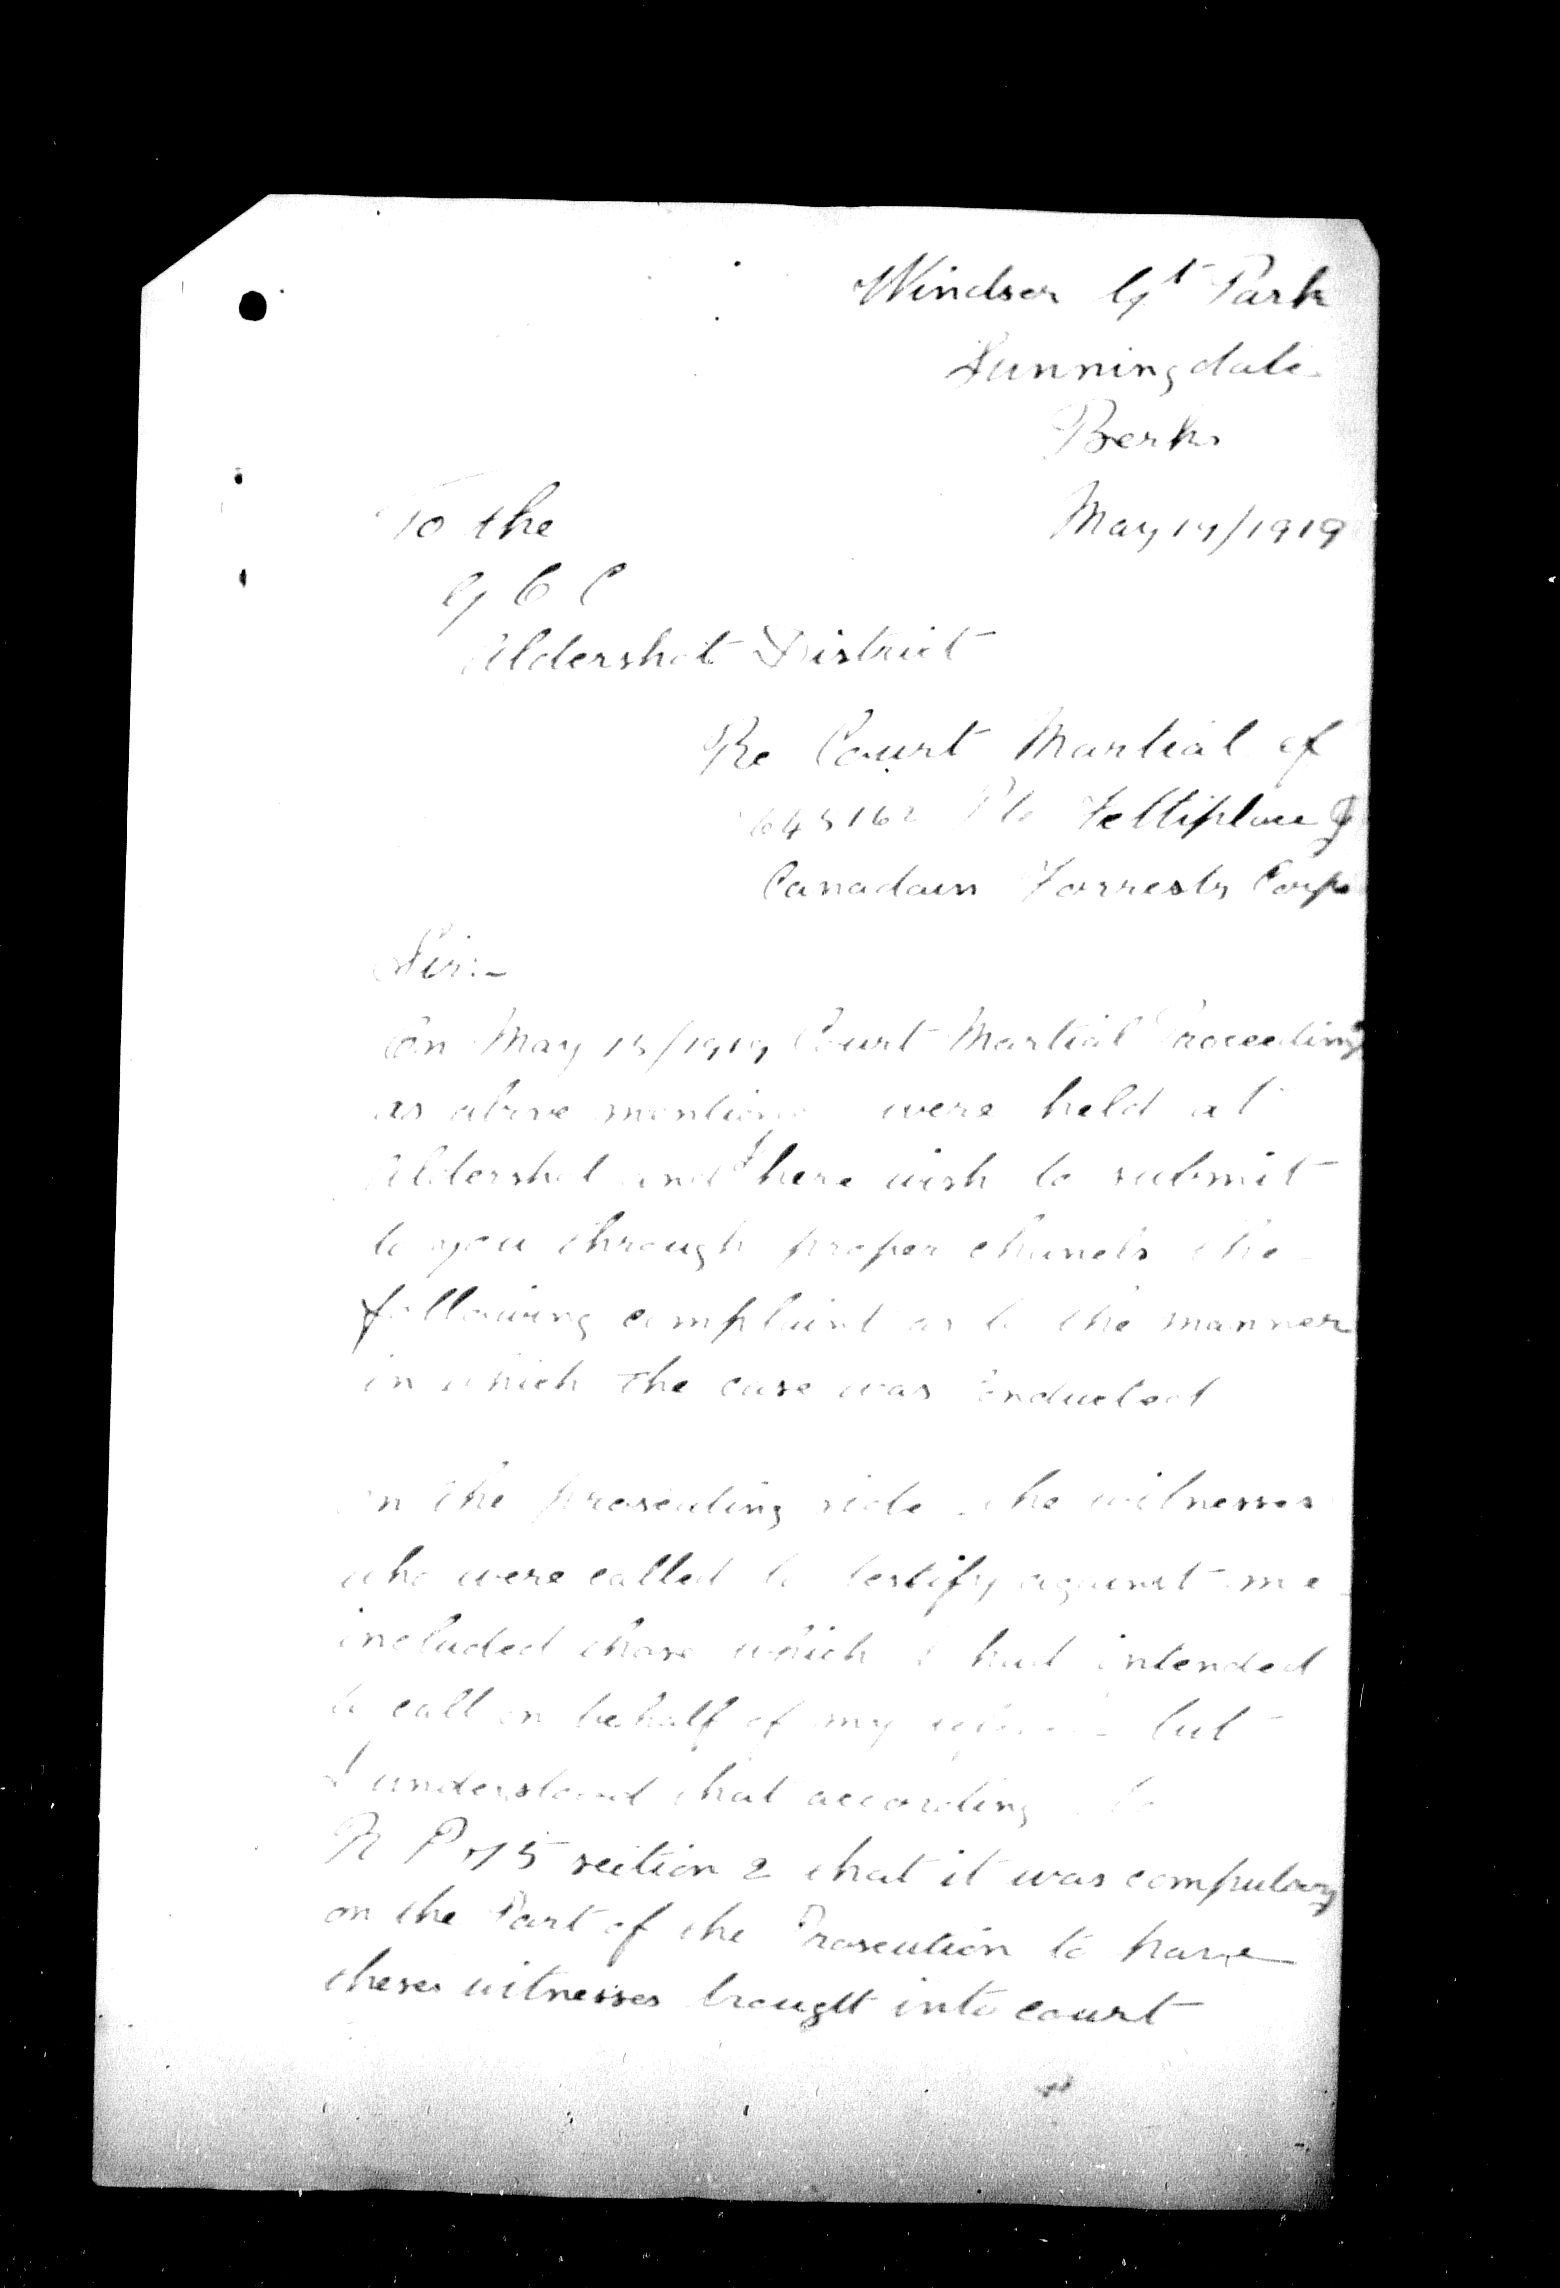 Windsor Gt Park
Sunningdale
Berks
To the May 17/1919
G O C
Aldershot District
Re Court Martial of
645162 Pte Fettiplace J
Canadain Forrestry Corps
Sir:-
On May 15/1919 Court Martial Proceedings
as above mention were held at
Aldershot and I here wish to submit
to you through proper chanels the
following complaint as to the manner
in which the case was conducted
on the prosecuting side the witnesses
who were called to testify against me
included those which I had intended
to call on behalf of my but
I understand that according to
R P 75 section 2 that it was compulsory
on the Part of the Prosecution to have
these witnesses brought into court